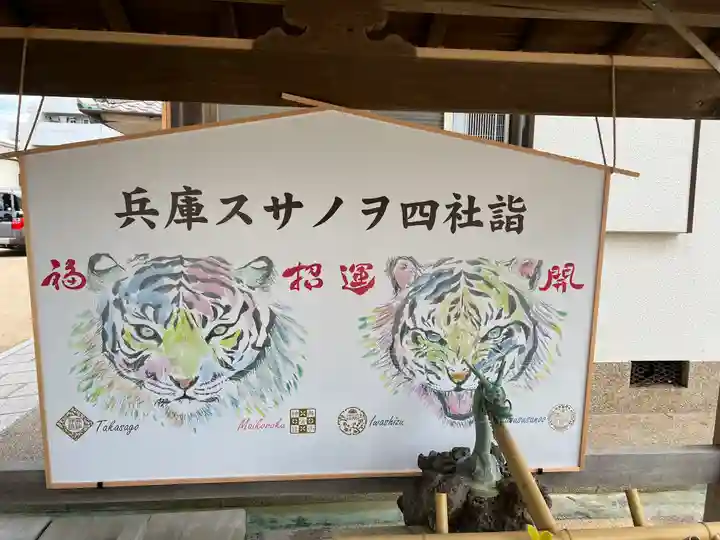 兵庫スサノヲ四社詣
福 招 運 開
Takasago Maikoroku Iwashizu